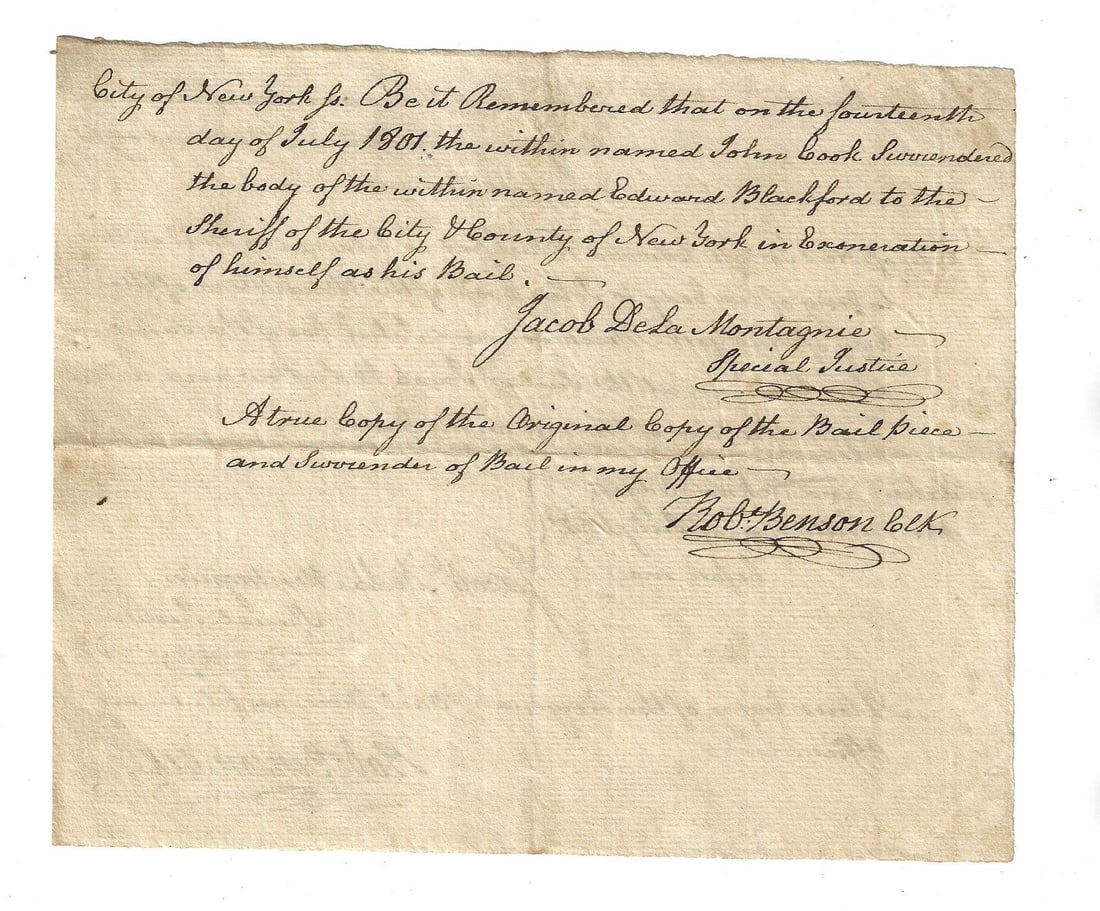 City of New York ss. Be it Remembered that on the fourteenth
day of July 1801. the within named John Cook Surrendered
the body of the within named Edward Blackford to the –
Sheriff of the City & County of New York in Exoneration –
of himself as his Bail. –
Jacob De La Montagnie –
Special Justice
A true Copy of the Original Copy of the Bail piece –
and Surrender of Bail in my Office –
Robt. Benson Clk